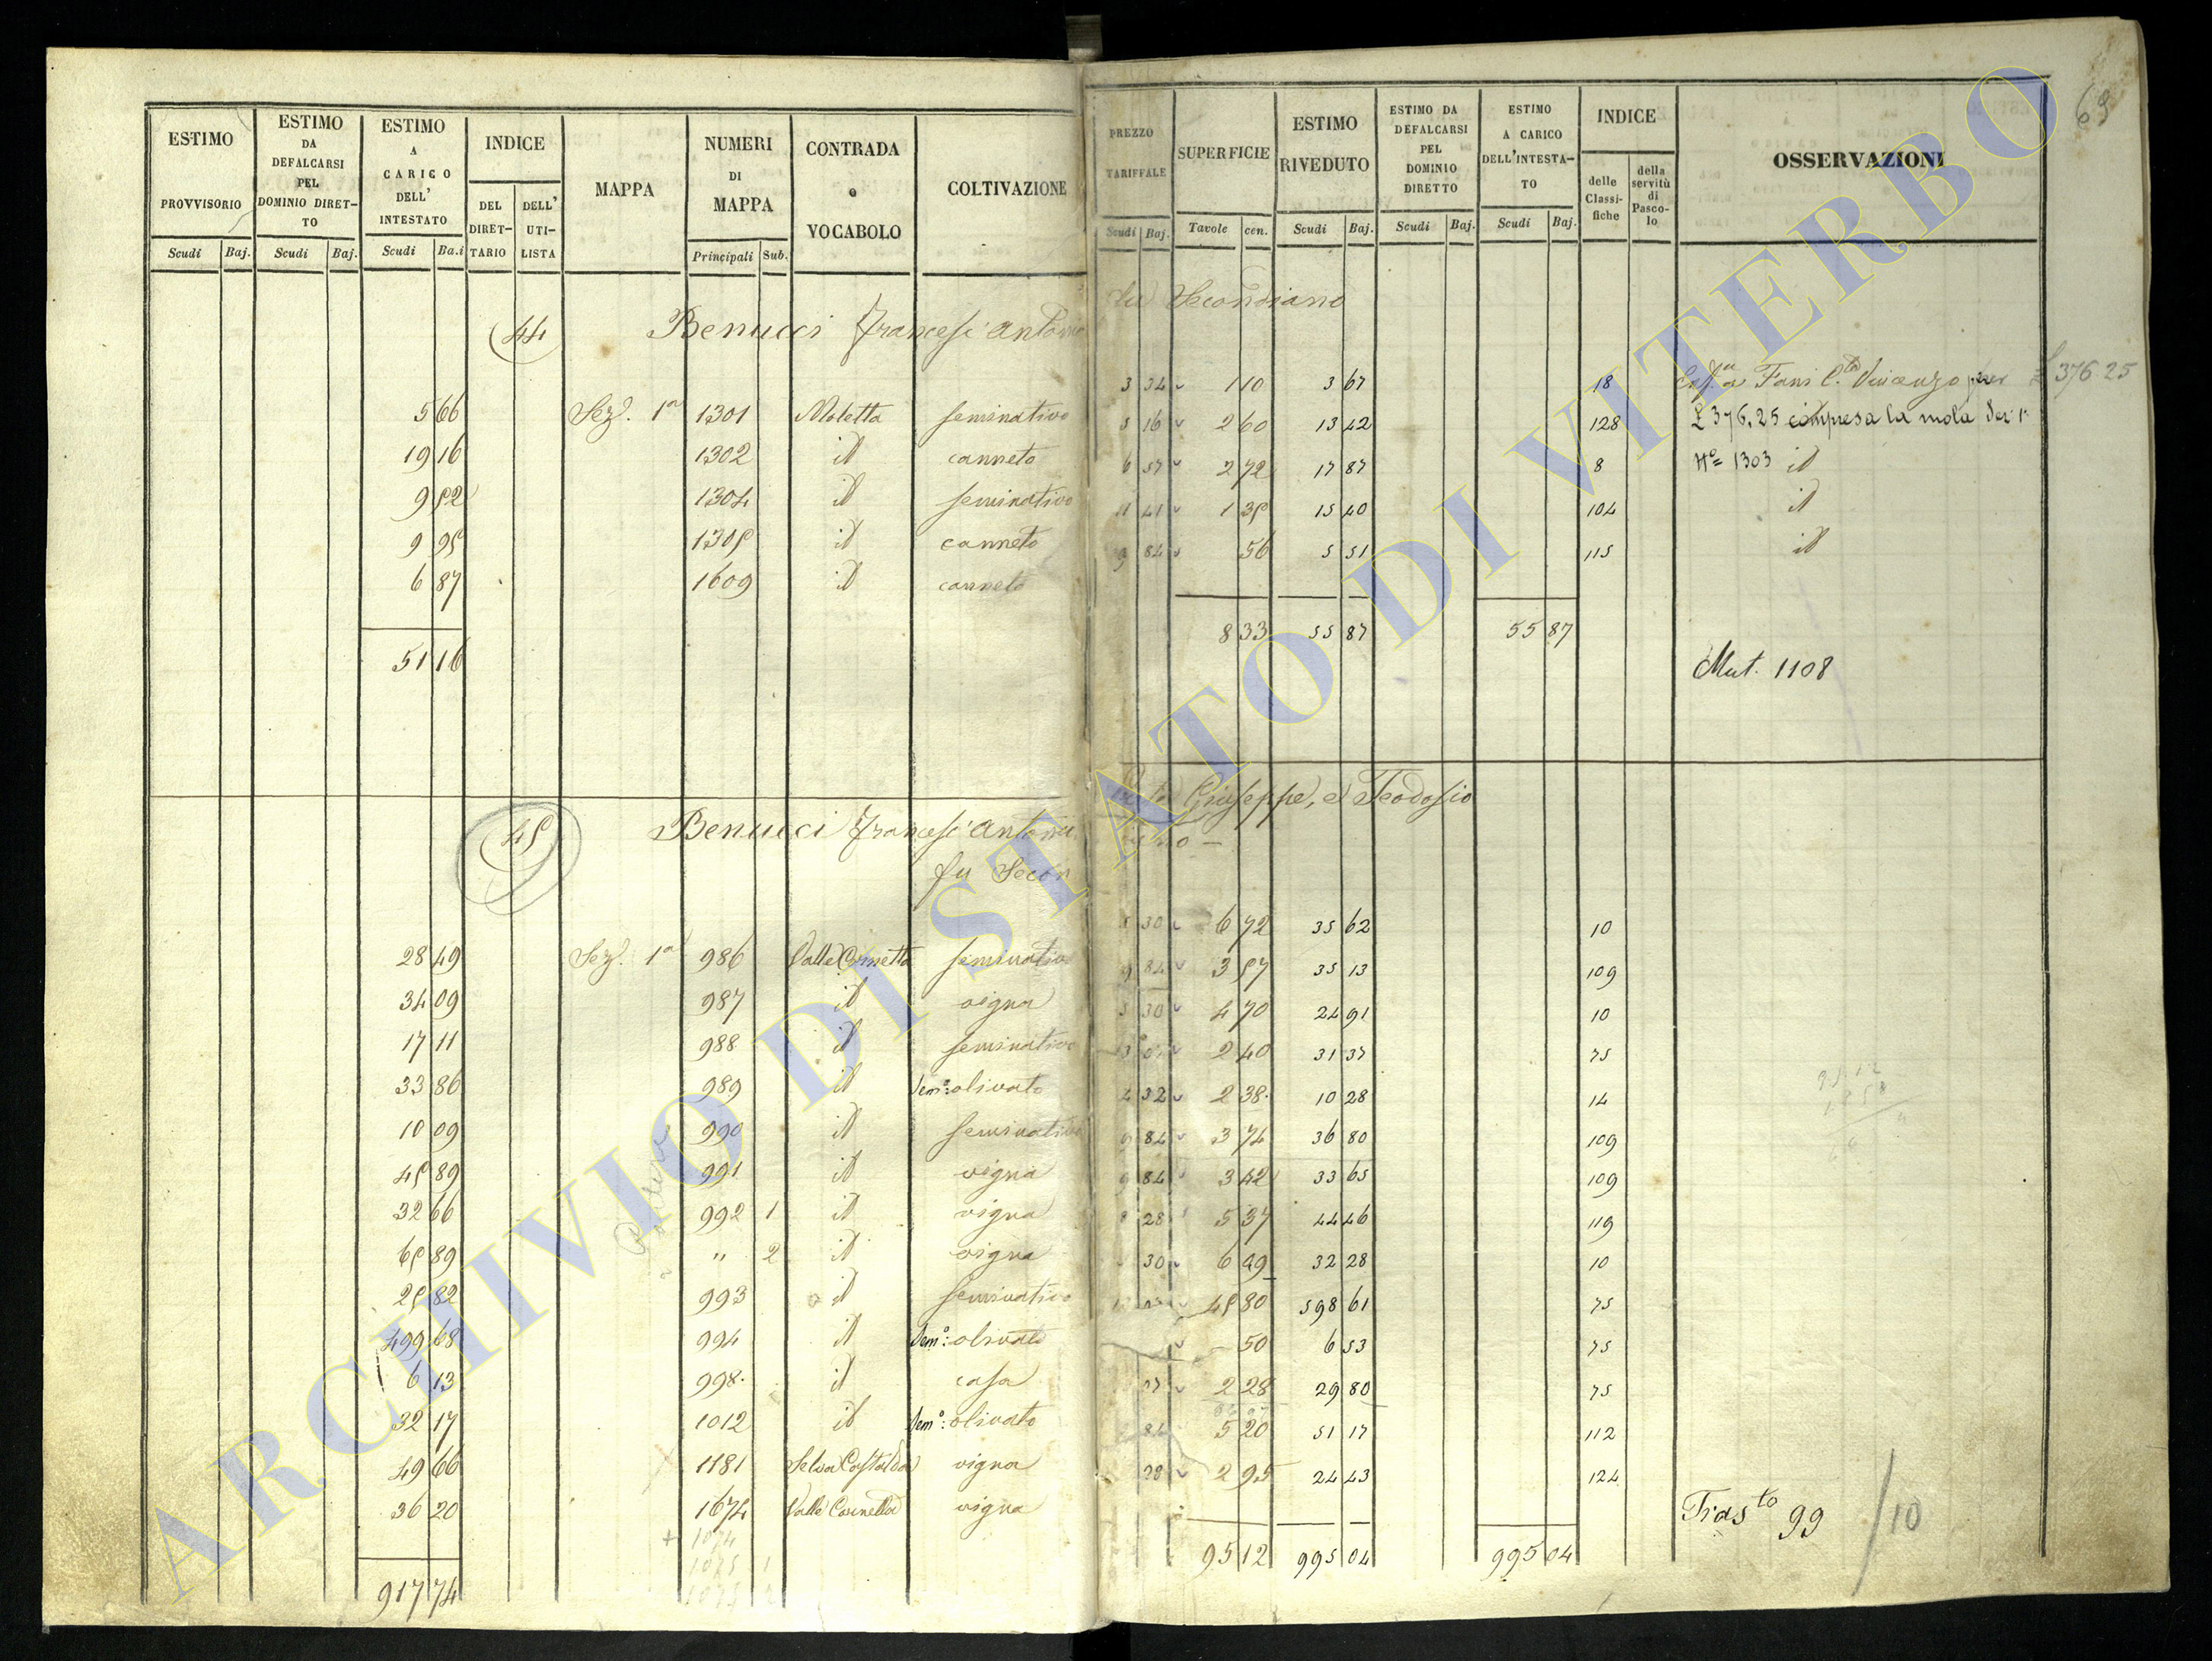 69
ESTIMO PROVVISORIO Scudi Baj.
ESTIMO DA DEFALCARSI PEL DOMINIO DIRETTO Scudi Baj.
ESTIMO A CARICO DELL' INTESTATO Scudi Ba.i
INDICE DEL DIRETTARIO DELL' UTILISTA
MAPPA
NUMERI DI MAPPA Principali Sub.
CONTRADA e VOCABOLO
COLTIVAZIONE
PREZZO TARIFFALE Scudi Baj.
SUPERFICIE Tavole cen.
ESTIMO RIVEDUTO Scudi Baj.
ESTIMO DA DEFALCARSI PEL DOMINIO DIRETTO Scudi Baj.
ESTIMO A CARICO DELL'INTESTATO Scudi Baj.
INDICE delle Classifiche della servitù di Pascolo
OSSERVAZIONI
44 Benucci Francesc'Antonio fu Secondiano
5 66 Sez. 1a 1301 Moletta seminativo 3 34 1 10 3 67 18
19 16 1302 id canneto 5 16 2 60 13 42 128 £ 376,25 compresa la mola Sez. 1a
9 52 1304 id seminativo 6 57 2 72 17 87 8 No= 1303 id
9 95 1305 id canneto 11 41 1 35 15 40 104 id
6 87 1609 id canneto 9 84 56 5 51 115 id
51 16 8 33 55 87 55 87
£ 376 25
Mut. 1108
45 Benucci Francesc'Antonio Giuseppe, e Teodosio
fu Secon
28 49 Sez. 1a 986 Valle Cornetta seminativo 5 30 6 72 35 62 10
34 09 987 id vigna 9 84 3 57 35 13 109
17 11 988 id seminativo 5 30 4 70 24 91 10
33 86 989 id Sem.o: olivato 2 40 31 37 75
10 09 990 id seminativo 4 32 2 38 10 28 14
45 89 991 id vigna 9 84 3 74 36 80 109
32 66 992 1 id vigna 9 84 3 42 33 65 109
65 89 " 2 id vigna 8 28 5 37 44 46 119
25 82 993 id seminativo 30 6 09 32 28 10
499 68 994 id Sem.o: olivato 45 80 598 61 75
6 13 998 id casa 50 6 53 75
32 17 1012 id Sem.o: olivato 07 2 28 29 80 75
49 66 1181 Selva Castalda vigna 84 5 20 51 17 112
36 20 1674 Valle Cornetta vigna 28 2 95 24 43 124
+ 1074
1075 1
1075 2
917 74 95 12 995 04 995 04
Trasto 99 /10
ARCHIVIO DI STATO DI VITERBO